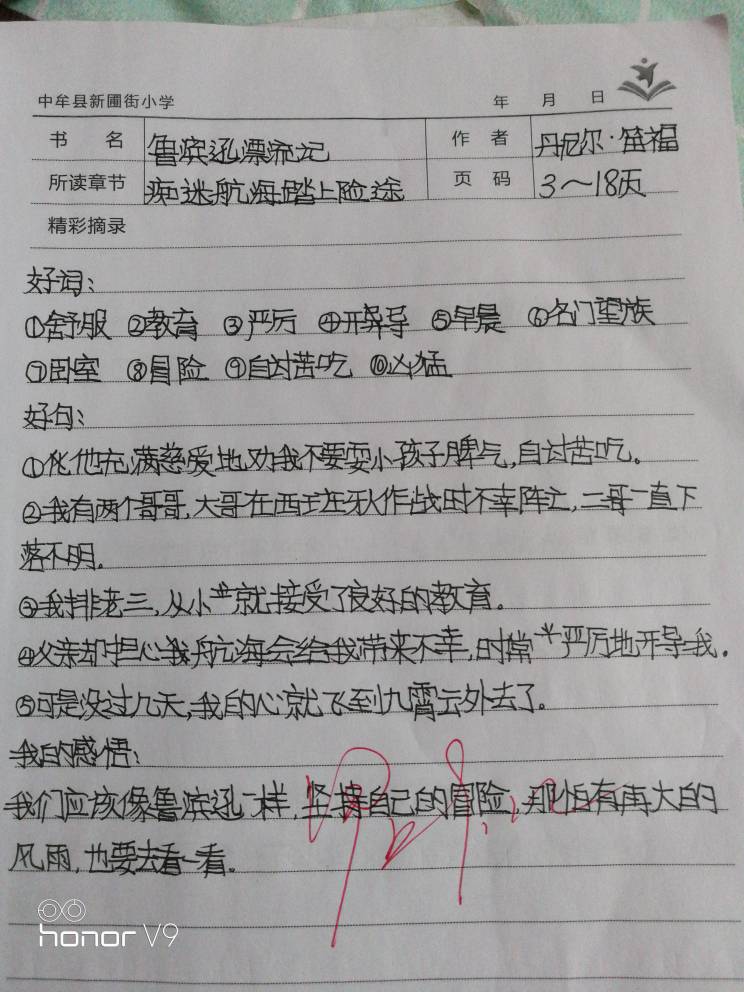 中牟县新圃街小学 年 月 日
书 名 鲁滨逊漂流记 作 者 丹尼尔·笛福
所读章节 痴迷航海踏上险途 页 码 3～18页
精彩摘录
好词：
①舒服 ②教育 ③严厉 ④开导 ⑤早晨 ⑥名门望族
⑦卧室 ⑧冒险 ⑨自讨苦吃 ⑩凶猛
好句：
①他充满慈爱地劝我不要耍小孩子脾气，自讨苦吃。
②我有两个哥哥，大哥在西班牙作战时不幸阵亡，二哥一直下
落不明。
③我排老三，从小就接受了良好的教育。
④父亲却担心我航海会给我带来不幸，时常严厉地开导我。
⑤可是没过几天，我的心就飞到九霄云外去了。
我的感悟：
我们应该像鲁滨逊一样，坚持自己的冒险，那怕有再大的
风雨，也要去看一看。
honor V9